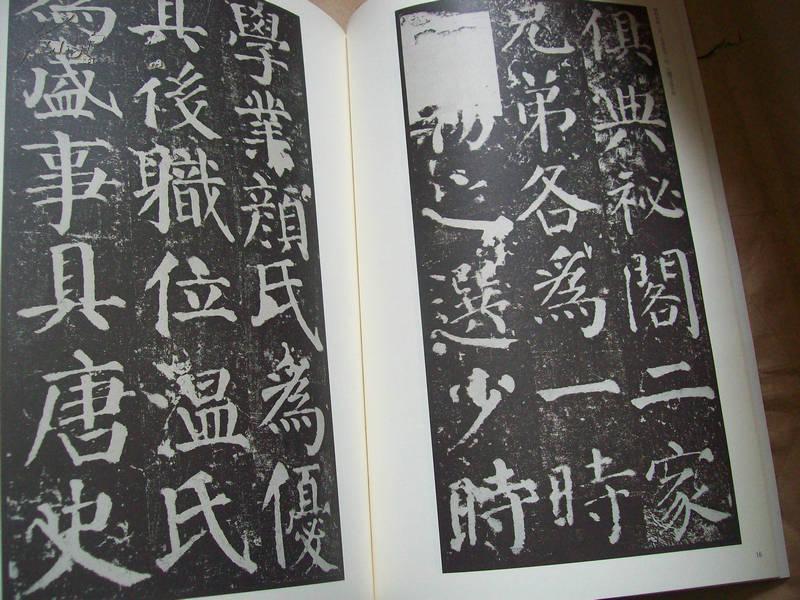 俱典祕閣二家
兄弟各爲一時
之選少時
學業顔氏爲優
其後職位温氏
爲盛事具唐史
16